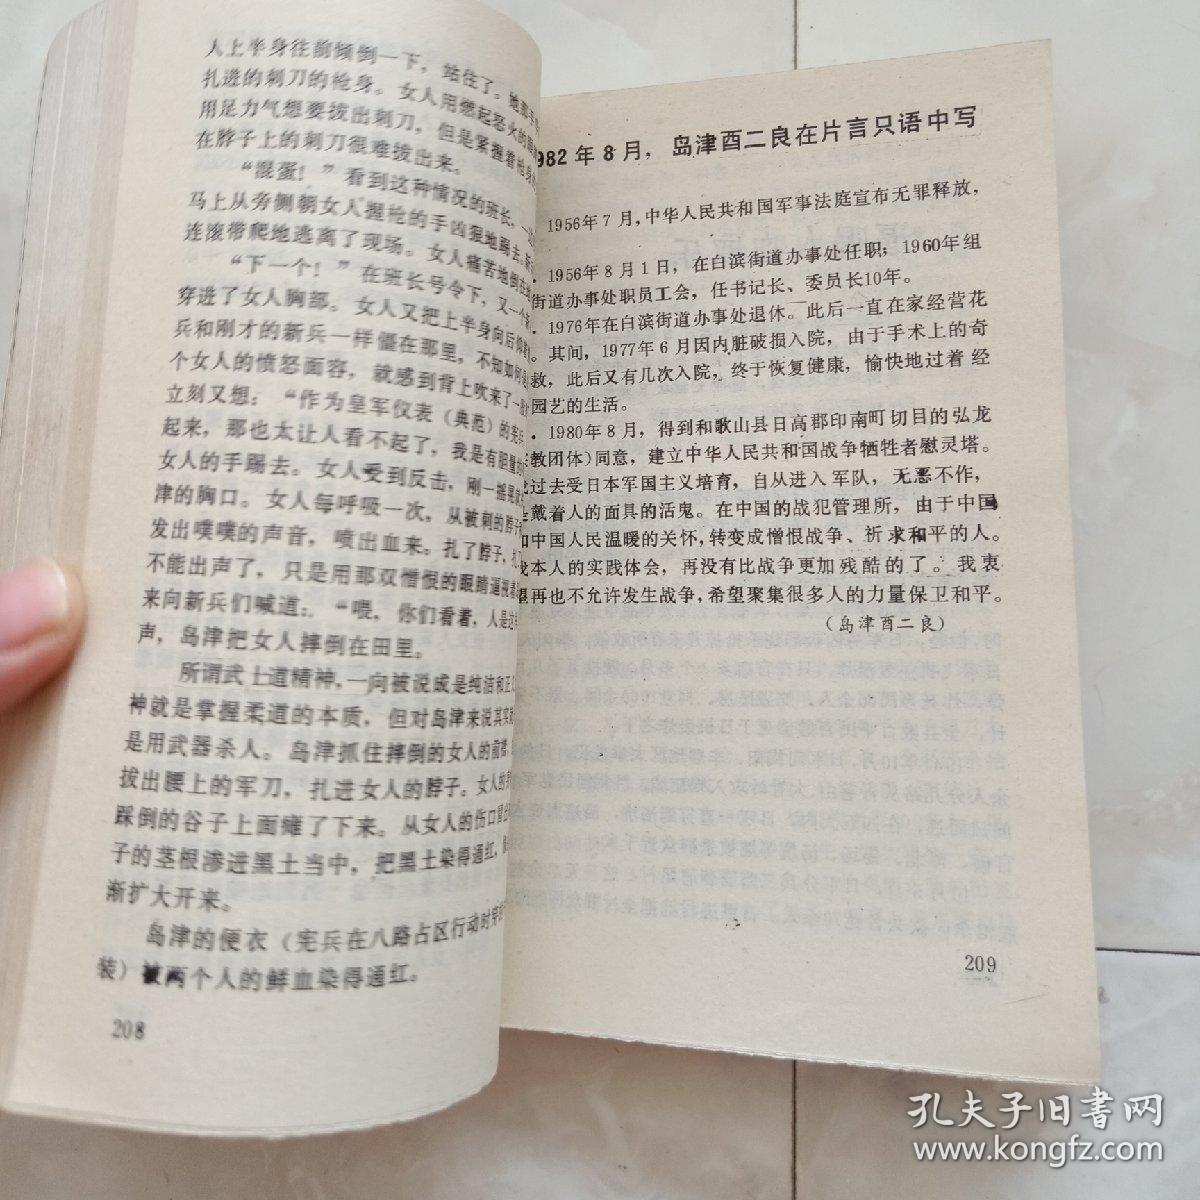 人上半身往前倾倒一下，站住了。她那手
扎进的刺刀的枪身。女人用燃起怒火的眼
用足力气想要拔出刺刀，但是紧握着枪身
在脖子上的刺刀很难拔出来。
“混蛋！”看到这种情况的班长，一
马上从旁侧朝女人握枪的手凶狠地踢去。新
连滚带爬地逃离了现场。女人痛苦地倒在
“下一个！”在班长号令下，又一个
穿进了女人胸部。女人又把上半身向后仰
兵和刚才的新兵一样慑在那里，不知如何是
个女人的愤怒面容，就感到背上吹来了一
立刻又想：“作为皇军仪表（典范）的宪兵
起来，那也太让人看不起了，我是有胆量的
女人的手踢去。女人受到反击，刚一摇晃
津的胸口。女人每呼吸一次，从被刺的脖子
发出噗噗的声音，喷出血来。扎了脖子，
不能出声了，只是用那双憎恨的眼睛逼视着
来向新兵们喊道：“喂，你们看着，人是这
声，岛津把女人摔倒在田里。
所谓武士道精神，一向被说成是纯洁和正
神就是掌握柔道的本质，但对岛津来说其实
是用武器杀人。岛津抓住摔倒的女人的前襟，
拔出腰上的军刀，扎进女人的脖子。女人的
踩倒的谷子上面瘫了下来。从女人的伤口
子的茎根渗进黑土当中，把黑土染得通红，
渐扩大开来。
岛津的便衣（宪兵在八路占区行动时穿的
装）被两个人的鲜血染得通红。
208
982年8月，岛津酉二良在片言只语中写
1956年7月，中华人民共和国军事法庭宣布无罪释放，
·1956年8月1日，在白滨街道办事处任职；1960年组
街道办事处职员工会，任书记长、委员长10年。
·1976年在白滨街道办事处退休。此后一直在家经营花
。其间，1977年6月因内脏破损入院，由于手术上的奇
救，此后又有几次入院，终于恢复健康，愉快地过着经
园艺的生活。
·1980年8月，得到和歌山县日高郡印南町切目的弘龙
教团体）同意，建立中华人民共和国战争牺牲者慰灵塔。
过去受日本军国主义培育，自从进入军队，无恶不作，
戴着人的面具的活鬼。在中国的战犯管理所，由于中国
和中国人民温暖的关怀，转变成憎恨战争、祈求和平的人。
本人的实践体会，再没有比战争更加残酷的了。我衷
望再也不允许发生战争，希望聚集很多人的力量保卫和平。
（岛津酉二良）
209
孔夫子旧书网
www.kongfz.com